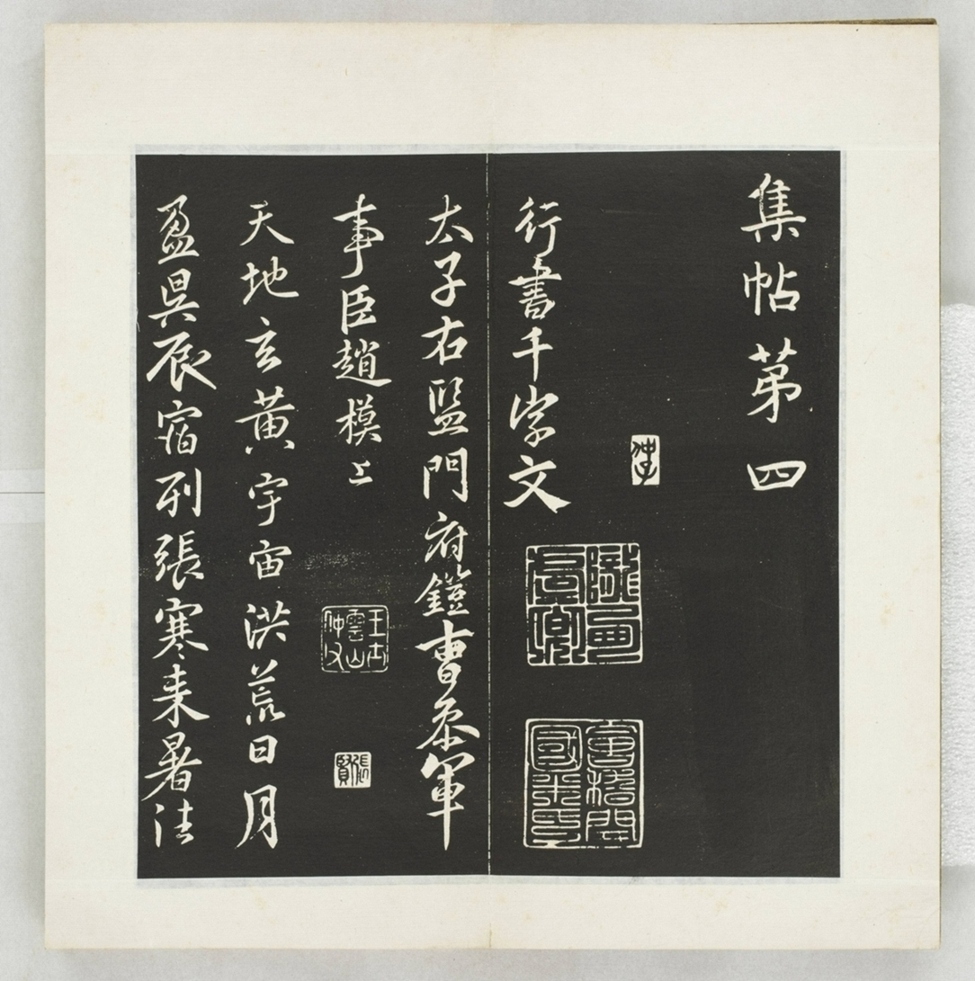 集帖第四
行書千字文
太子右監門府鎧曹叅軍
事臣趙模上
天地玄黃宇宙洪荒日月
盈昃辰宿列張寒来暑往